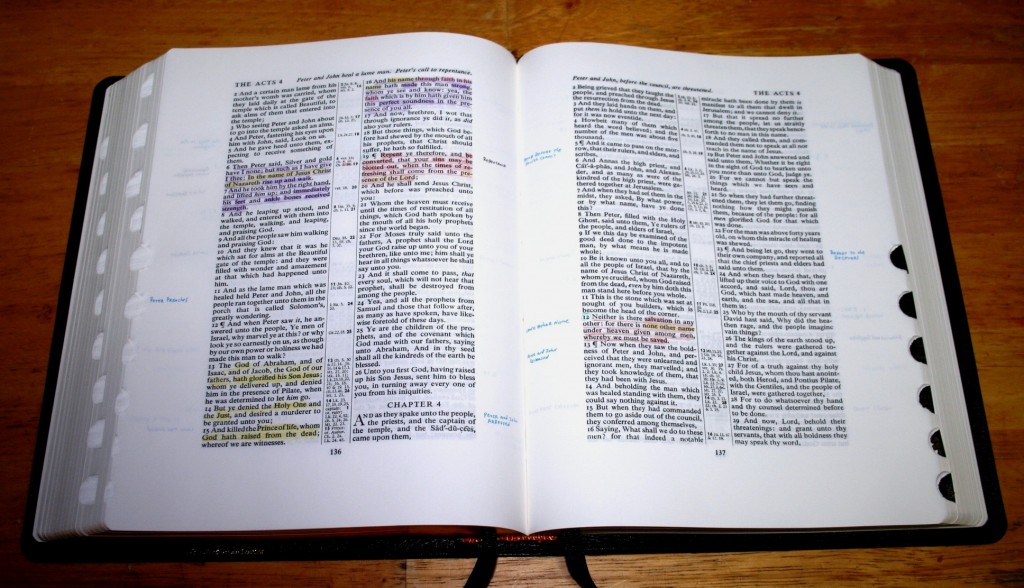 THE ACTS 4
Peter and John heal a lame man. Peter's call to repentance.
2 And a certain man lame from his
mother's womb was carried, whom
they laid daily at the gate of the
temple which is called Beautiful, to
ask alms of them that entered into
the temple;
3 Who seeing Peter and John about
to go into the temple asked an alms.
4 And Peter, fastening his eyes upon
him with John, said, Look on us.
5 And he gave heed unto them, ex-
pecting to receive something of
them.
6 Then Peter said, Silver and gold
have I none; but such as I have give
I thee: In the name of Jesus Christ
of Nazareth rise up and walk.
7 And he took him by the right hand,
and lifted him up: and immediately
his feet and ankle bones received
strength.
8 And he leaping up stood, and
walked, and entered with them into
the temple, walking, and leaping,
and praising God.
9 And all the people saw him walking
and praising God:
10 And they knew that it was he
which sat for alms at the Beautiful
gate of the temple: and they were
filled with wonder and amazement
at that which had happened unto
him.
11 And as the lame man which was
healed held Peter and John, all the
people ran together unto them in the
porch that is called Solomon's,
greatly wondering.
12 ¶ And when Peter saw it, he an-
swered unto the people, Ye men of
Israel, why marvel ye at this? or why
look ye so earnestly on us, as though
by our own power or holiness we had
made this man to walk?
13 The God of Abraham, and of
Isaac, and of Jacob, the God of our
fathers, hath glorified his Son Jesus;
whom ye delivered up, and denied
him in the presence of Pilate, when
he was determined to let him go.
14 But ye denied the Holy One and
the Just, and desired a murderer to
be granted unto you;
15 And killed the Prince of life, whom
God hath raised from the dead;
whereof we are witnesses.
16 And his name through faith in his
name hath made this man strong,
whom ye see and know: yea, the
faith which is by him hath given him
this perfect soundness in the pre-
sence of you all.
17 And now, brethren, I wot that
through ignorance ye did it, as did
also your rulers.
18 But those things, which God be-
fore had shewed by the mouth of all
his prophets, that Christ should
suffer, he hath so fulfilled.
19 ¶ Repent ye therefore, and be
converted, that your sins may be
blotted out, when the times of re-
freshing shall come from the pre-
sence of the Lord;
20 And he shall send Jesus Christ,
which before was preached unto
you:
21 Whom the heaven must receive
until the times of restitution of all
things, which God hath spoken by
the mouth of all his holy prophets
since the world began.
22 For Moses truly said unto the
fathers, A prophet shall the Lord
your God raise up unto you of your
brethren, like unto me; him shall ye
hear in all things whatsoever he shall
say unto you.
23 And it shall come to pass, that
every soul, which will not hear that
prophet, shall be destroyed from
among the people.
24 Yea, and all the prophets from
Samuel and those that follow after,
as many as have spoken, have like-
wise foretold of these days.
25 Ye are the children of the pro-
phets, and of the covenant which
God made with our fathers, saying
unto Abraham, And in thy seed
shall all the kindreds of the earth be
blessed.
26 Unto you first God, having raised
up his Son Jesus, sent him to bless
you, in turning away every one of
you from his iniquities.
CHAPTER 4
AND as they spake unto the people,
the priests, and the captain of
the temple, and the Săd'-dū-çēeş,
came upon them,
136
Peter and John, before the council, are threatened.
THE ACTS 4
2 Being grieved that they taught the
people, and preached through Jesus
the resurrection from the dead.
3 And they laid hands on them, and
put them in hold unto the next day:
for it was now eventide.
4 Howbeit many of them which
heard the word believed; and the
number of the men was about five
thousand.
5 ¶ And it came to pass on the mor-
row, that their rulers, and elders, and
scribes,
6 And Annas the high priest, and
Cā'-ă-phăs, and John, and Alexan-
der, and as many as were of the
kindred of the high priest, were ga-
thered together at Jerusalem.
7 And when they had set them in the
midst, they asked, By what power,
or by what name, have ye done
this?
8 Then Peter, filled with the Holy
Ghost, said unto them, Ye rulers of
the people, and elders of Israel,
9 If we this day be examined of the
good deed done to the impotent
man, by what means he is made
whole;
10 Be it known unto you all, and to
all the people of Israel, that by the
name of Jesus Christ of Nazareth,
whom ye crucified, whom God raised
from the dead, even by him doth this
man stand here before you whole.
11 This is the stone which was set at
nought of you builders, which is
become the head of the corner.
12 Neither is there salvation in any
other: for there is none other name
under heaven given among men,
whereby we must be saved.
13 ¶ Now when they saw the bold-
ness of Peter and John, and per-
ceived that they were unlearned and
ignorant men, they marvelled; and
they took knowledge of them, that
they had been with Jesus.
14 And beholding the man which
was healed standing with them, they
could say nothing against it.
15 But when they had commanded
them to go aside out of the council,
they conferred among themselves,
16 Saying, What shall we do to these
men? for that indeed a notable
miracle hath been done by them is
manifest to all them that dwell in
Jerusalem; and we cannot deny it.
17 But that it spread no further
among the people, let us straitly
threaten them, that they speak hence-
forth to no man in this name.
18 And they called them, and com-
manded them not to speak at all nor
teach in the name of Jesus.
19 But Peter and John answered and
said unto them, Whether it be right
in the sight of God to hearken unto
you more than unto God, judge ye.
20 For we cannot but speak the
things which we have seen and
heard.
21 So when they had further threat-
ened them, they let them go, finding
nothing how they might punish
them, because of the people: for all
men glorified God for that which
was done.
22 For the man was above forty years
old, on whom this miracle of healing
was shewed.
23 ¶ And being let go, they went to
their own company, and reported all
that the chief priests and elders had
said unto them.
24 And when they heard that, they
lifted up their voice to God with one
accord, and said, Lord, thou art
God, which hast made heaven, and
earth, and the sea, and all that in
them is:
25 Who by the mouth of thy servant
David hast said, Why did the hea-
then rage, and the people imagine
vain things?
26 The kings of the earth stood up,
and the rulers were gathered to-
gether against the Lord, and against
his Christ.
27 For of a truth against thy holy
child Jesus, whom thou hast anoint-
ed, both Herod, and Pontius Pilate,
with the Gentiles, and the people of
Israel, were gathered together,
28 For to do whatsoever thy hand
and thy counsel determined before
to be done.
29 And now, Lord, behold their
threatenings: and grant unto thy
servants, that with all boldness they
may speak thy word,
137